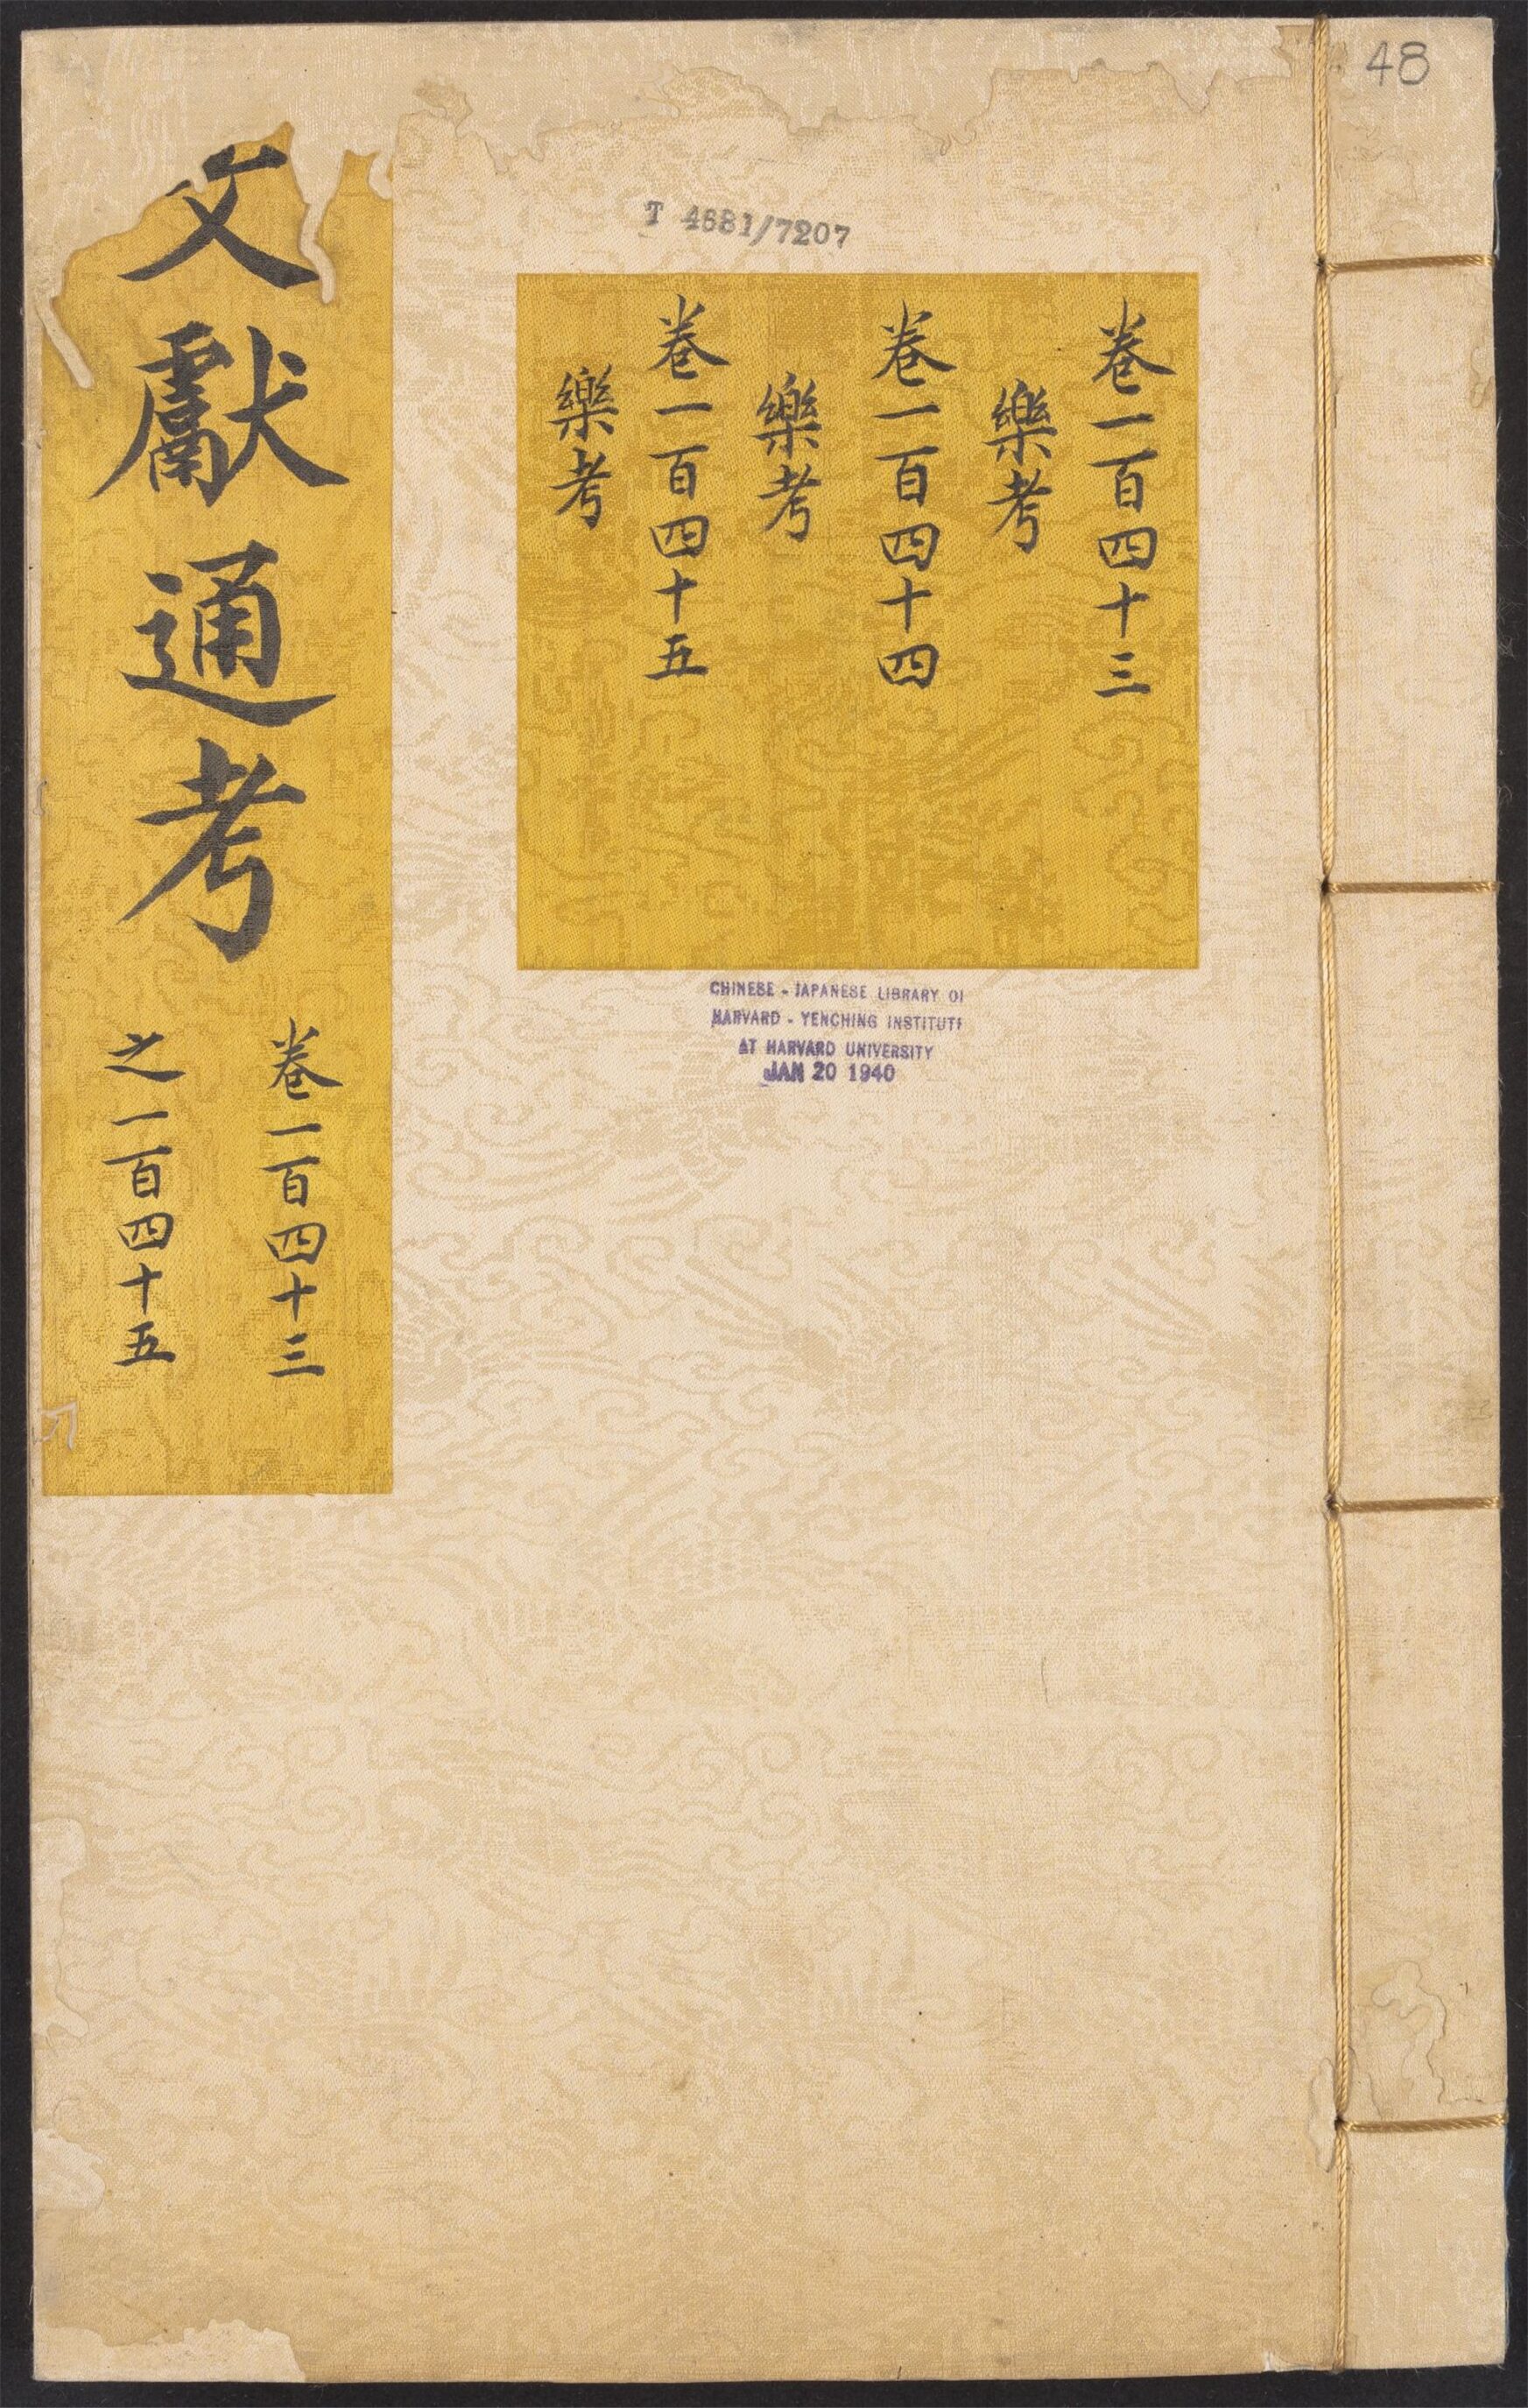 48
T 4681/7207
卷一百四十三
樂考
卷一百四十四
樂考
卷一百四十五
樂考
文獻通考
卷一百四十三
之一百四十五
CHINESE - JAPANESE LIBRARY OF
HARVARD - YENCHING INSTITUTE
AT HARVARD UNIVERSITY
JAN 20 1940